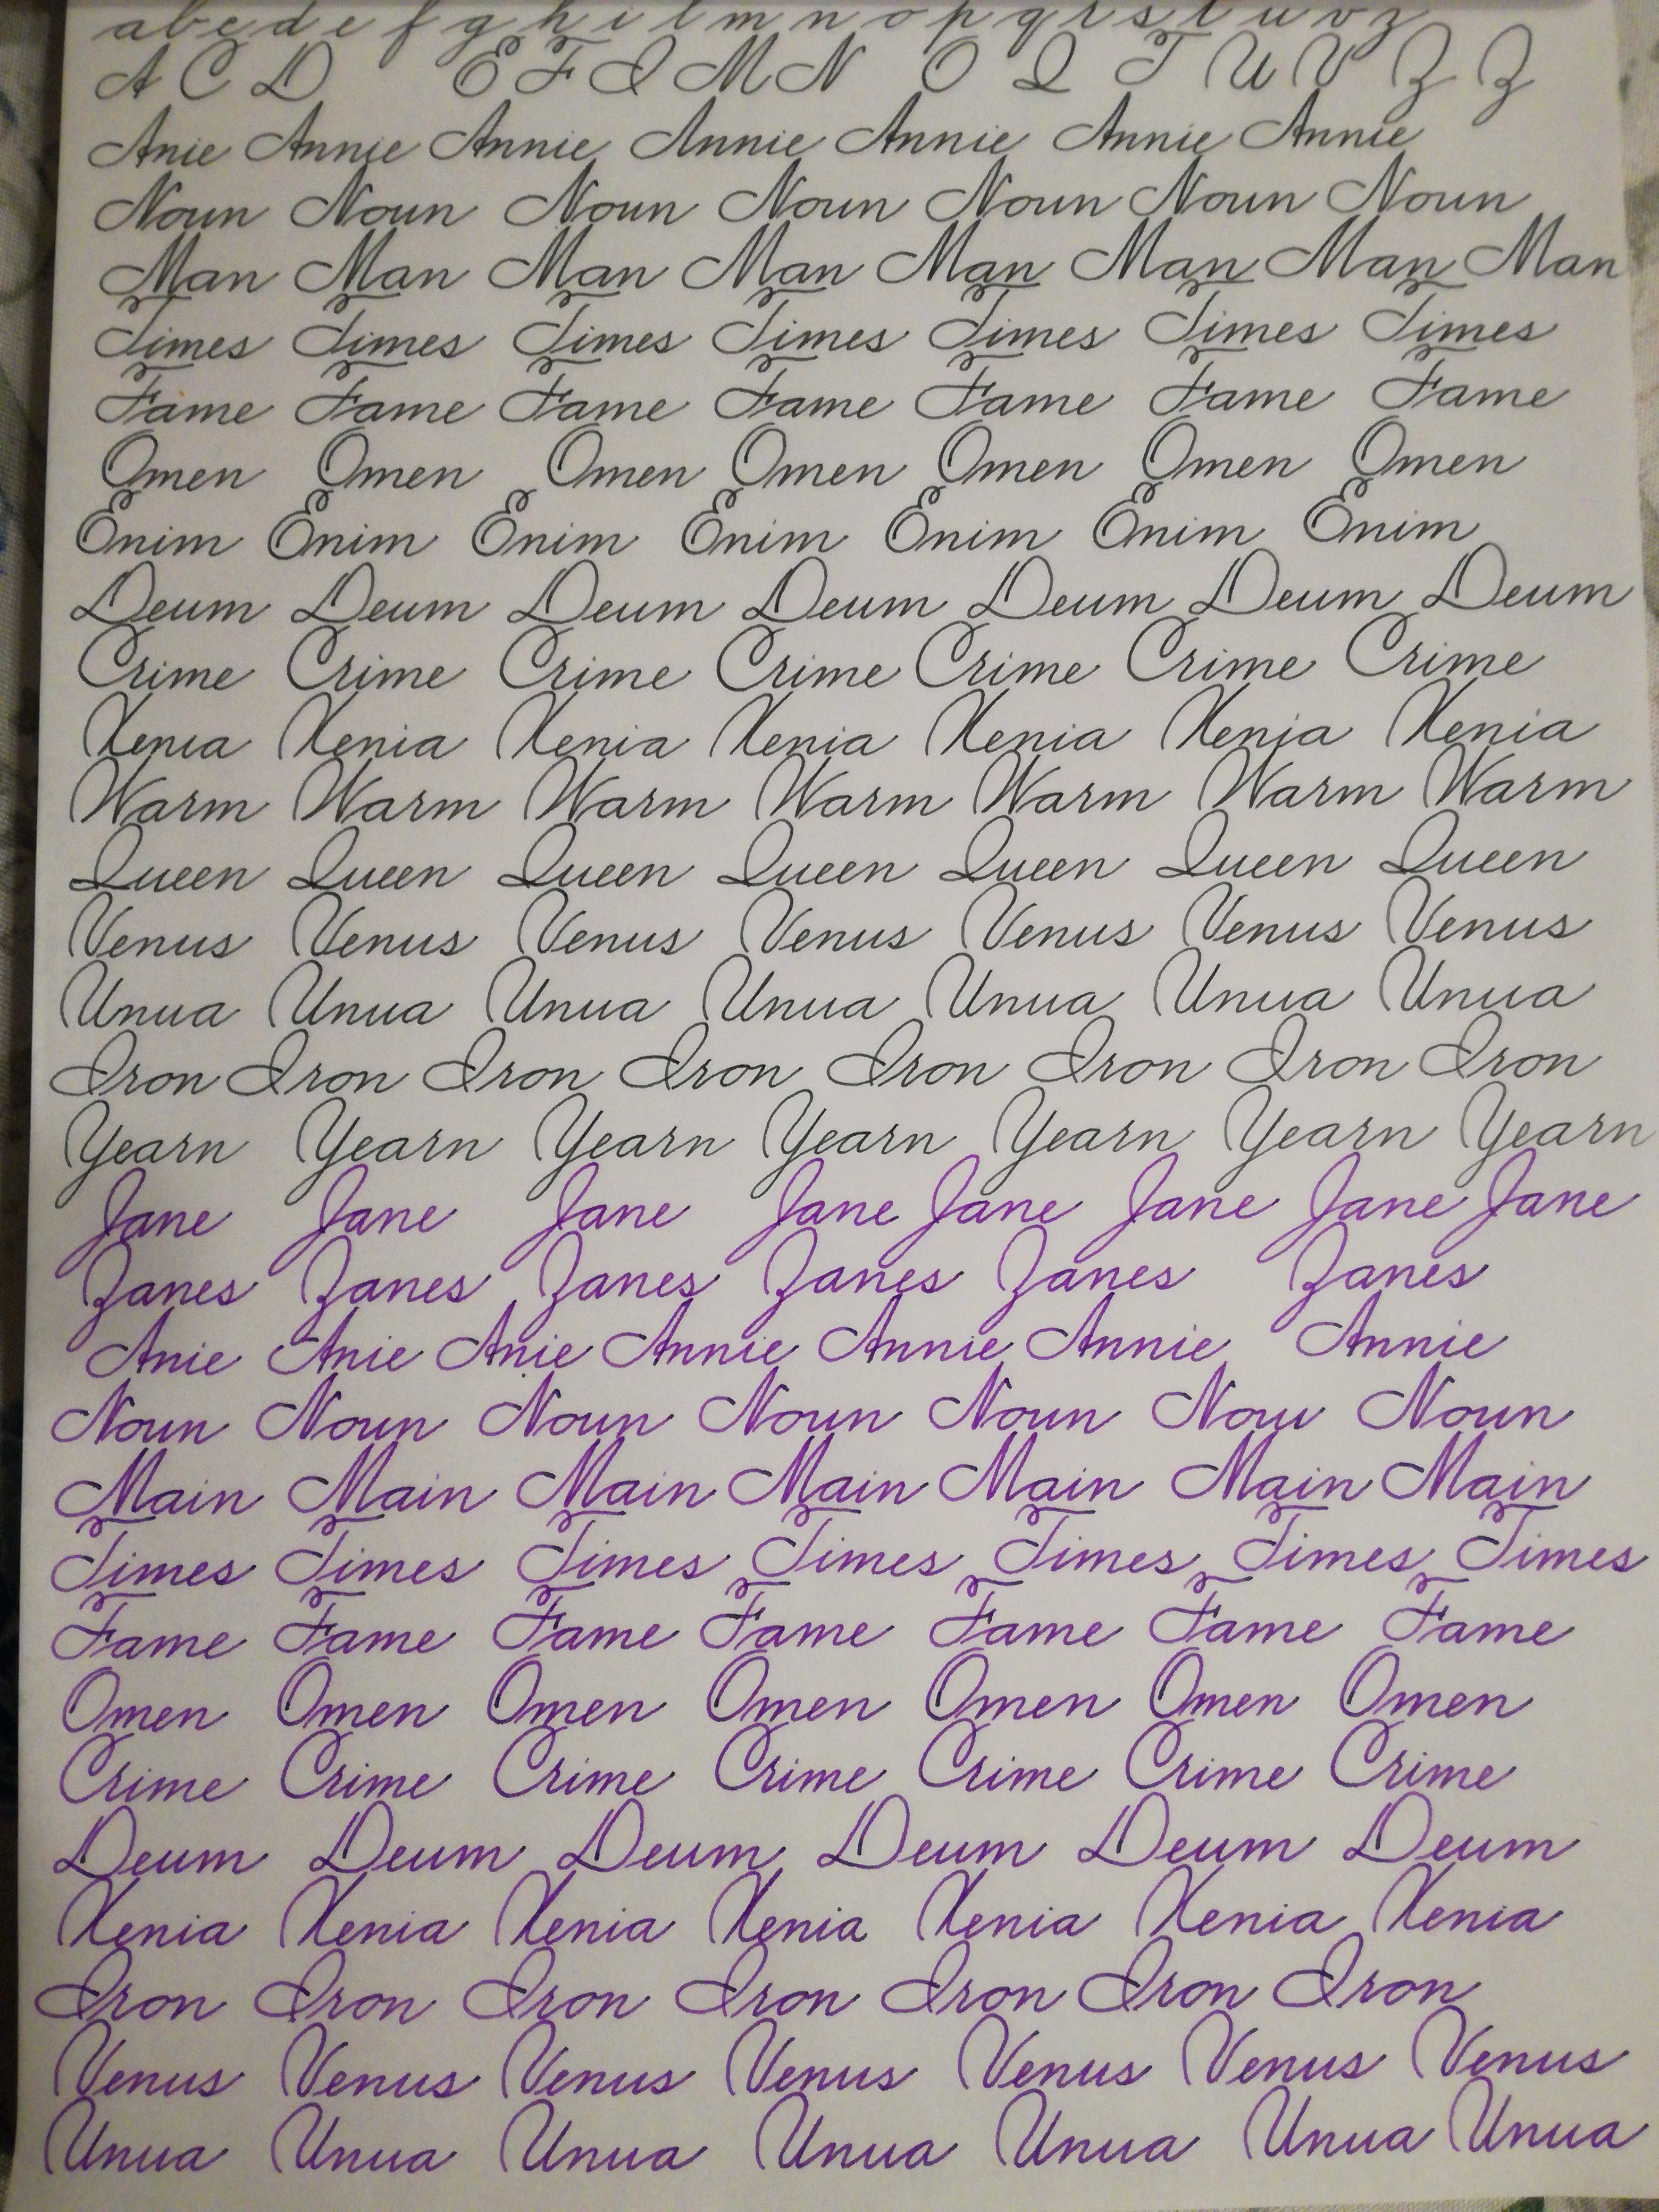 a b c d e f g h i l m n o p q r s t u v z
A C D E F I M N O Q T U V Z Z
Anie Annie Annie Annie Annie Annie Annie
Noun Noun Noun Noun Noun Noun Noun
Man Man Man Man Man Man Man Man
Times Times Times Times Times Times Times
Fame Fame Fame Fame Fame Fame Fame
Omen Omen Omen Omen Omen Omen Omen
Enim Enim Enim Enim Enim Enim Enim
Deum Deum Deum Deum Deum Deum Deum
Crime Crime Crime Crime Crime Crime Crime
Xenia Xenia Xenia Xenia Xenia Xenia Xenia
Warm Warm Warm Warm Warm Warm Warm
Queen Queen Queen Queen Queen Queen Queen
Venus Venus Venus Venus Venus Venus Venus
Unua Unua Unua Unua Unua Unua Unua
Iron Iron Iron Iron Iron Iron Iron Iron
Yearn Yearn Yearn Yearn Yearn Yearn Yearn
Jane Jane Jane Jane Jane Jane Jane Jane
Zanes Zanes Zanes Zanes Zanes Zanes
Anie Anie Anie Annie Annie Annie Annie
Noun Noun Noun Noun Noun Nou Noun
Main Main Main Main Main Main Main
Times Times Times Times Times Times Times
Fame Fame Fame Fame Fame Fame Fame
Omen Omen Omen Omen Omen Omen Omen
Crime Crime Crime Crime Crime Crime Crime
Deum Deum Deum Deum Deum Deum
Xenia Xenia Xenia Xenia Xenia Xenia Xenia
Iron Iron Iron Iron Iron Iron Iron
Venus Venus Venus Venus Venus Venus Venus
Unua Unua Unua Unua Unua Unua Unua